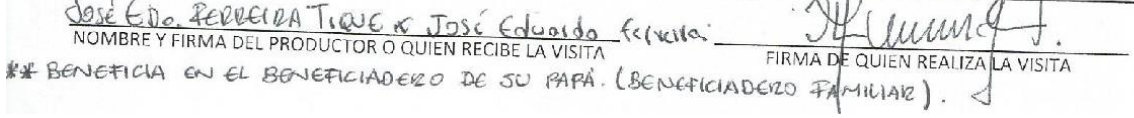 JOSÉ EDO. FERREIRA TIQUE x José Eduardo Ferreira
NOMBRE Y FIRMA DEL PRODUCTOR O QUIEN RECIBE LA VISITA
FIRMA DE QUIEN REALIZA LA VISITA
** BENEFICIA EN EL BENEFICIADERO DE SU PAPÁ. (BENEFICIADERO FAMILIAR).